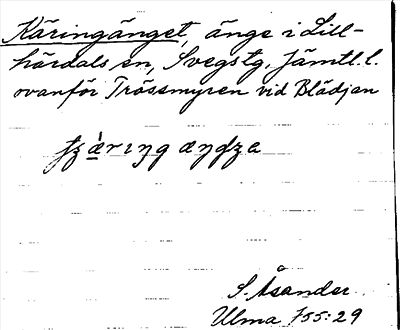 Käringänget, änge i Lill-
härdals sn, Svegs tg, Jämtl. l.
ovanför Trössmyren vid Blädjan
S. Åsander.
Ulma 755:29